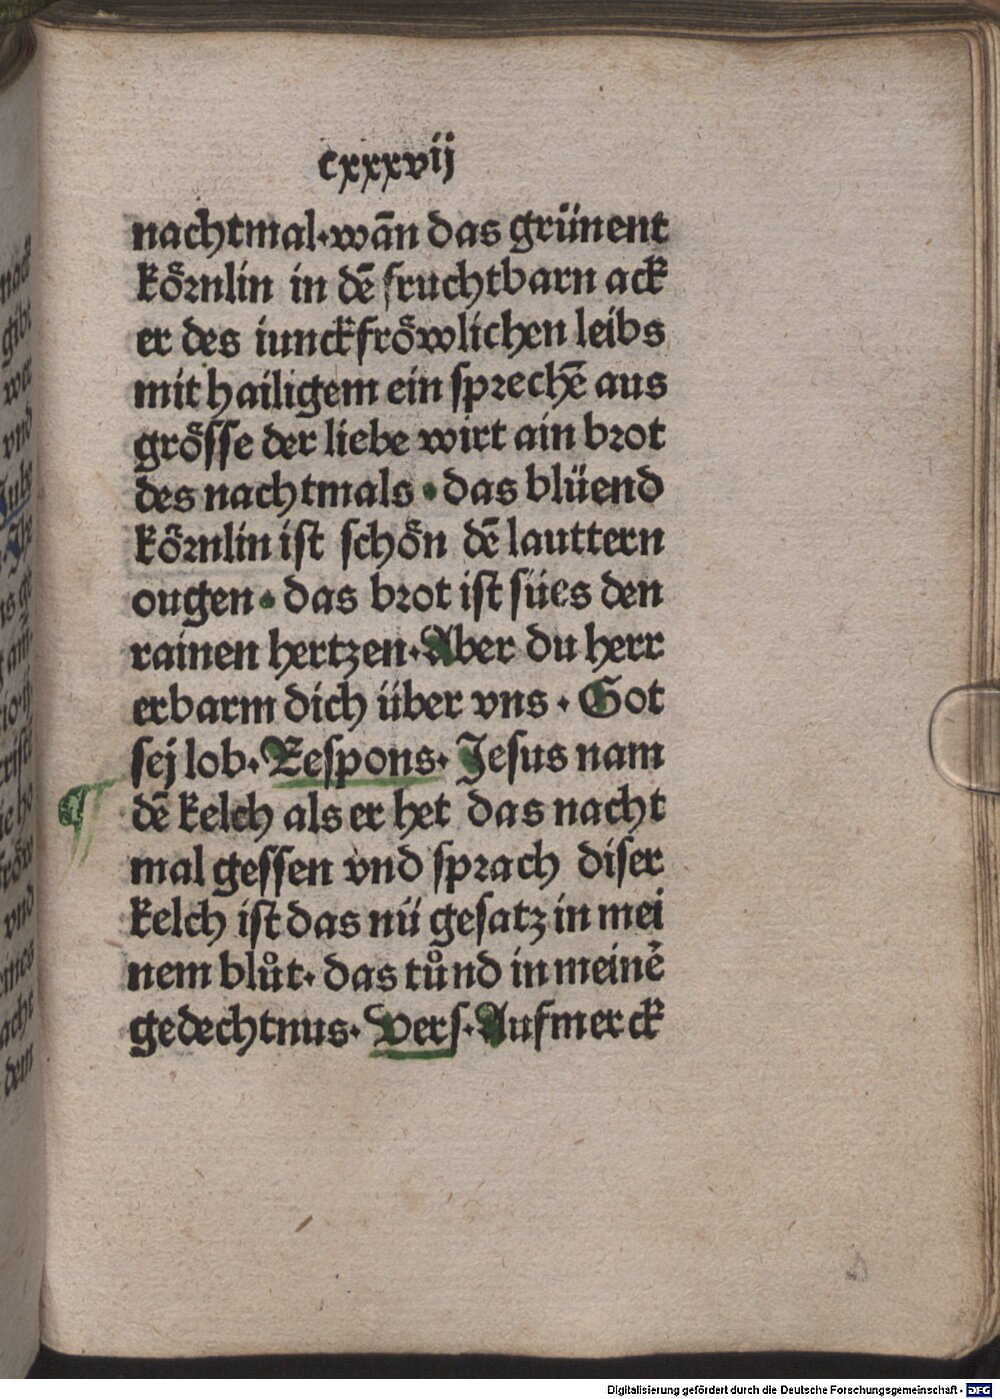 cxxxvij
nachtmal·wañ das grünent
kȍrnlin in dē fruchtbarn ack
er des iunckfrȍwlichen leibs
mit hailigem ein sprechē aus
grȍsse der liebe wirt ain brot
des nachtmals·das blüend
kȍrnlin ist schȍn dē lauttern
ougen·das brot ist sües den
rainen hertzen·Aber du herr
erbarm dich über vns·Got
sej lob·Respons·Jesus nam
dē kelch als er het das nacht
mal gessen vnd sprach diser
kelch ist das nü gesatz in mei
nem blůt·das tůnd in meinē
gedechtnus·Vers·Aufmerck
Digitalisierung gefördert durch die Deutsche Forschungsgemeinschaft - DFG